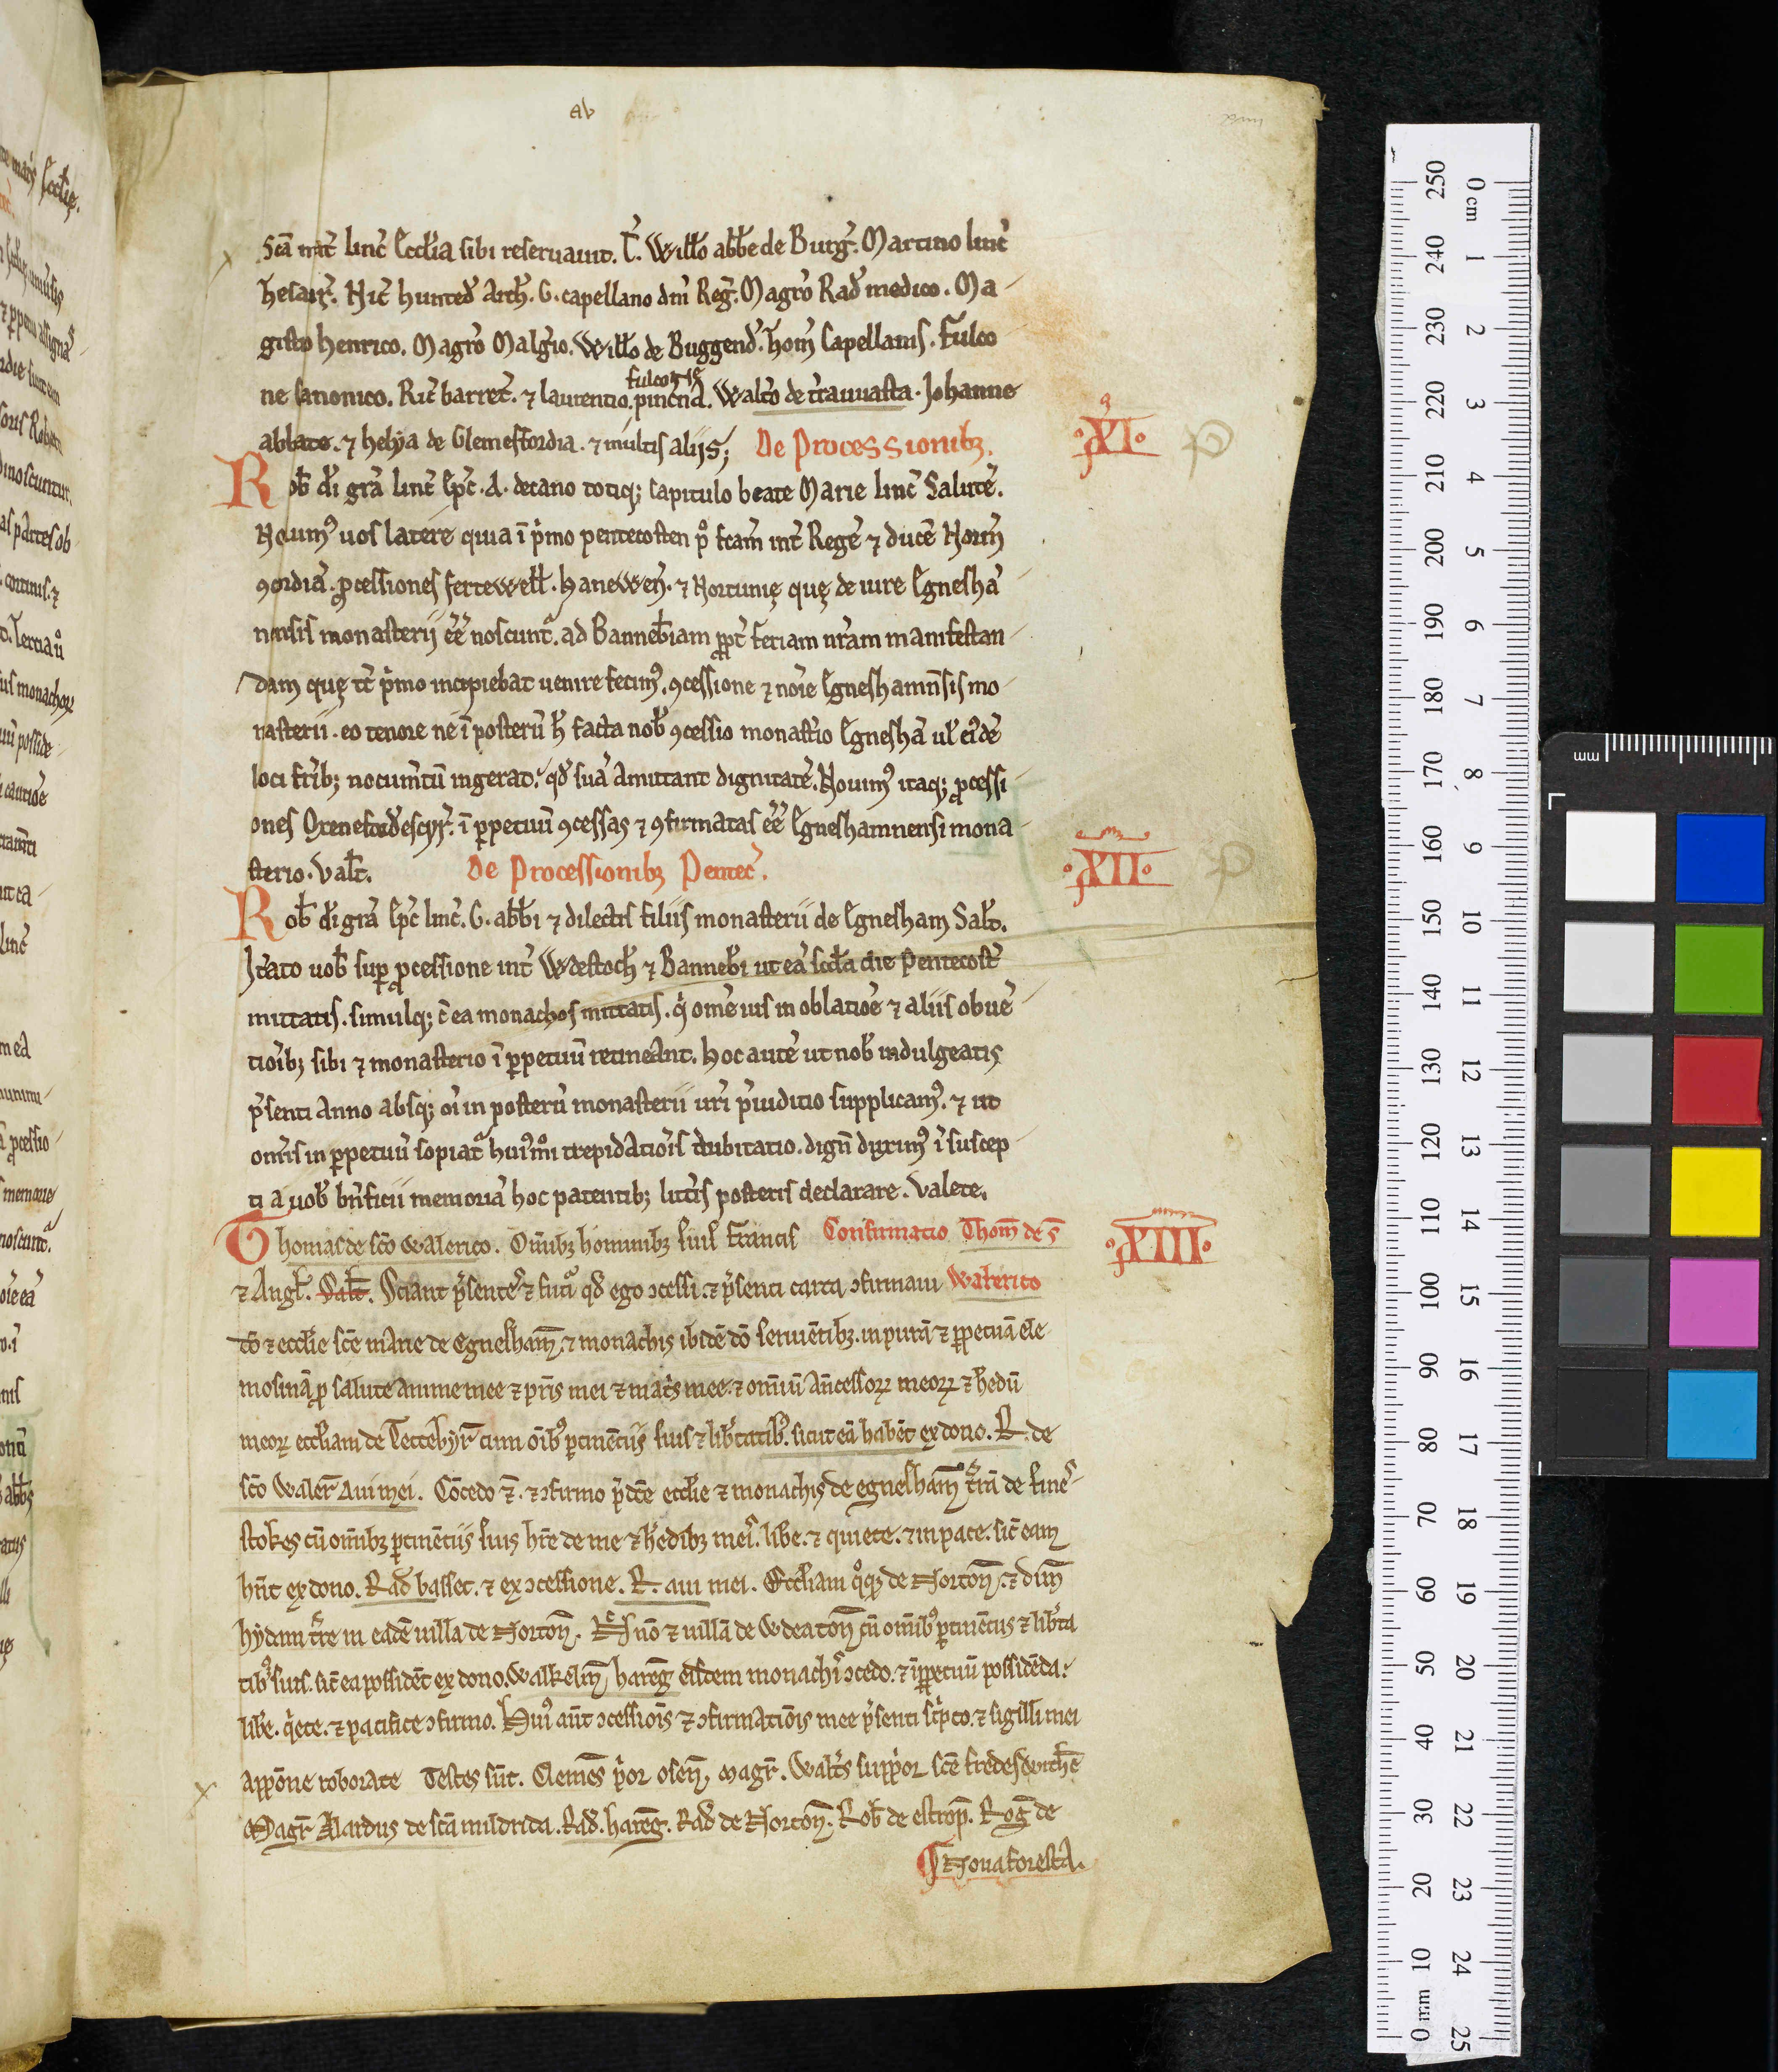 ab
xiiii
Scā mat̄ linc̄ Eccl̄ia sibi reseruauit. T̄. Will̄o abb̄e de Burḡ. Martino linc̄
Thesaur̄. Nic̄ hunted̄ Arch̄. G. capellano dn̄i Reḡ. Magr̄o Rad̄ medico. Ma-
gistro henrico. Magr̄o Malg̃io. Will̄o de Buggend̄. Thom̄ Capellanis. Fulco-
fulconis
ne canonico. Ric̄ barret̄. ⁊ laurentio. pincn̄a. Walt̄o de t̃rauuasta. Johanne
abbate. ⁊ helya de Glemesfordia. ⁊ multis alijs; De Processionibꝫ.
·XI·
Rob̄ dī grā linc̄ Ep̄c. A. decano totiqꝫ capitulo beate Marie linc̄ Salutē.
Nolumꝰ uos latere quia ī p̃mo pentecosten p̊ fcām int̄ Regē ⁊ ducē Norm̄
ꝯcordiā. ꝓcessiones fertewell̄. hanewen̄. ⁊ Nortunię quę de iure Egneshā-
nensis monasterij eē noscunt̃. ad Banneb̄iam ꝓpt̄ feriam nr̄am manifestan-
dam quę tc̄ p̃mo incipiebat uenire fecimꝰ. ꝯcessione ⁊ noīe Egneshamn̄sis mo-
nasterii. eo tenore ne ī posterū h̄ facta nob̄ ꝯcessio monast̃io Egneshā ul̄ eidē
loci fr̄ibꝫ nocum̄tū ingerat. qd̄ suā amittant dignitatē. Nouimꝰ itaqꝫ ꝓcessi-
ones Oxenefordescyr̄. ī ꝑpetuū ꝯcessas ⁊ ꝯfirmatas eē̄ Egneshamnensi mona-
sterio. Val̄t. De Processionibꝫ Pentec̄.
·XII·
Rob̄ dī grā Ep̄c linc̄. G. abb̄i ⁊ dilectis filiis monasterii de Egnesham Sal̄t.
Mando uob̄ suꝑ ꝓcessione int̄ Wdestoch̄ ⁊ Banneb̄i ut eā scd̄a die Pentecost̄
mittatis. simulqꝫ c̄ ea monachos mittatis. q̇ om̄e ius in oblatiōe ⁊ aliis obuē-
tioībꝫ sibi ⁊ monasterio ī ꝑpetuū retineant. hoc autē ut nob̄ indulgeatis
p̃senti anno absqꝫ oī in posterū monasterii ur̄i p̃iuditio supplicamꝰ. ⁊ ut
om̄is in ꝑpetuū sopiat̃ hui̇m̊i trepidatiōis dubitatio. dignū duximꝰ ī suscep-
ti a uob̄ bn̄ficii memoriā hoc patentibꝫ litt̃is posteris declarare. Valete.
Thomas de sc̄o Walerico. Om̄ibꝫ hominibꝫ suis francis Confirmatio Thom̄ de s̄
·XIII·
⁊ Angl̄. Sal̄t. Sciant p̃sentes ⁊ fut̃i qd̄ ego ↄcessi. ⁊ p̃senti carta ↄfirmaui Walerico
dō ⁊ eccl̄ie sc̄e marie de Egnesham̄. ⁊ monachis ibidē dō seruiētibꝫ. in purā ⁊ ꝑpetuā ele-
mosinā ꝓ salute anime mee ⁊ pr̄is mei ⁊ mat̃s mee. ⁊ om̄iū an̄cessorꝝ meorꝝ ⁊ h̄edū
meorꝝ. eccl̄iam de Tettebyr̄ cum oīb; ꝑtinētijs suis ⁊ lib̄tatibꝰ. sicut eā habēt ex dono. R. de
sc̄o Waler̄ aui mei. Cōcedo ⁊̄. ⁊ ↄfirmo p̃dc̄e eccl̄ie ⁊ monachis de egnesham̄ t̃rā de fine-
stokes cū om̄ibꝫ ꝑtinētiis suis hr̄e de me ⁊ h̄edibꝫ meis. lib̄e. ⁊ quiete. ⁊ in pace. sic̄ eam
hn̄t ex dono. Rad̄ basset. ⁊ ex ↄcessione. R. aui mei. Eccl̄iam q̊qꝫ de Norton̄. ⁊ dim̄
hydam t̃re in eadē uilla de Norton̄. Nō ⁊ uillā de Wdeaton̄ cū om̄ibꝰ ꝑtinētiis ⁊ lib̄ta-
tibꝰ suis. sic̄ ea possidēt ex dono. Walkelin̄ harenḡ eisdem monachis ↄcedo. ⁊ ī ꝑpetuū possidēda.
lib̄e. q̇ete. ⁊ pacifice ↄfirmo. Huiꝰ aūt ↄcessiōis ⁊ ↄfirmatiōis mee p̃senti sc̃pto. ⁊ sigilli mei
appōne roborate Testes sūt. Clemēs p̃or osen̄. magr̄. Walt̃s supp̃or sc̄e fredeswithe
Magr̄ Alardus de scā mildrida. Rad̄. harenḡ. Rad̄ de Norton̄. Rob̄ de estrop̄. Roḡ de
Noua foresta.